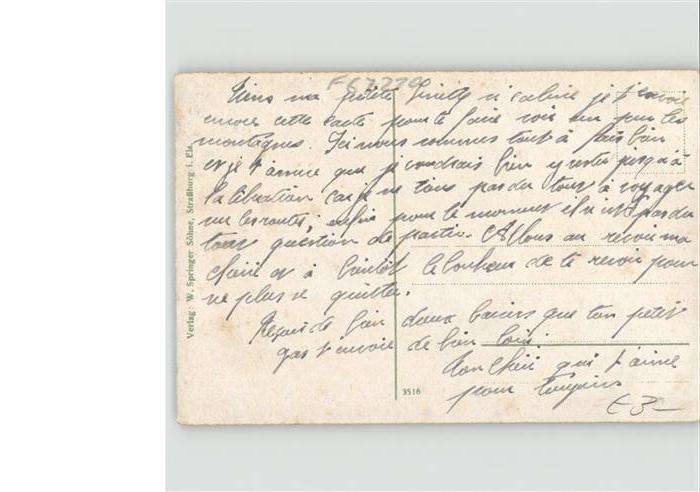 F67729
Tiens ma petite si caline je t'envoie
encore cette carte pour te faire voir un peu les
montagnes. Ici nous sommes tout à fait bien
et je t'assure que je voudrais bien y rester jusqu'à
la libération car je ne tiens pas du tout à voyager
sur les routes; enfin pour le moment il n'est pas du
tout question de partir. Allons au revoir ma
chérie et à bientôt le bonheur de te revoir pour
ne plus se quitter.
Reçois de bien doux baisers que ton petit
gas t'envoie de bien loin.
Ton chéri qui t'aime
pour toujours
Verlag W. Springer Söhne, Straßburg i. Els.
3516
€3—